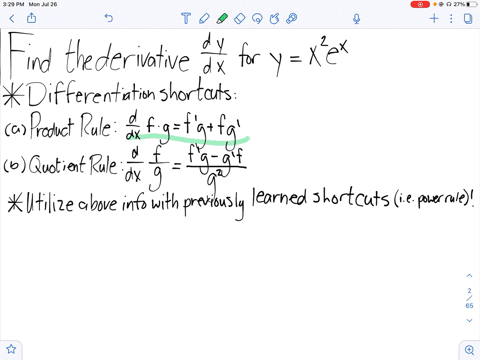 3:29 PM Mon Jul 26
27%
Find the derivative dy/dx for y = x²eˣ
* Differentiation shortcuts:
(a) Product Rule: d/dx f·g = f'g + fg'
(b) Quotient Rule: d/dx f/g = (f'g - g'f)/g²
* Utilize above info with previously learned shortcuts (i.e. power rule)!
2
/
65